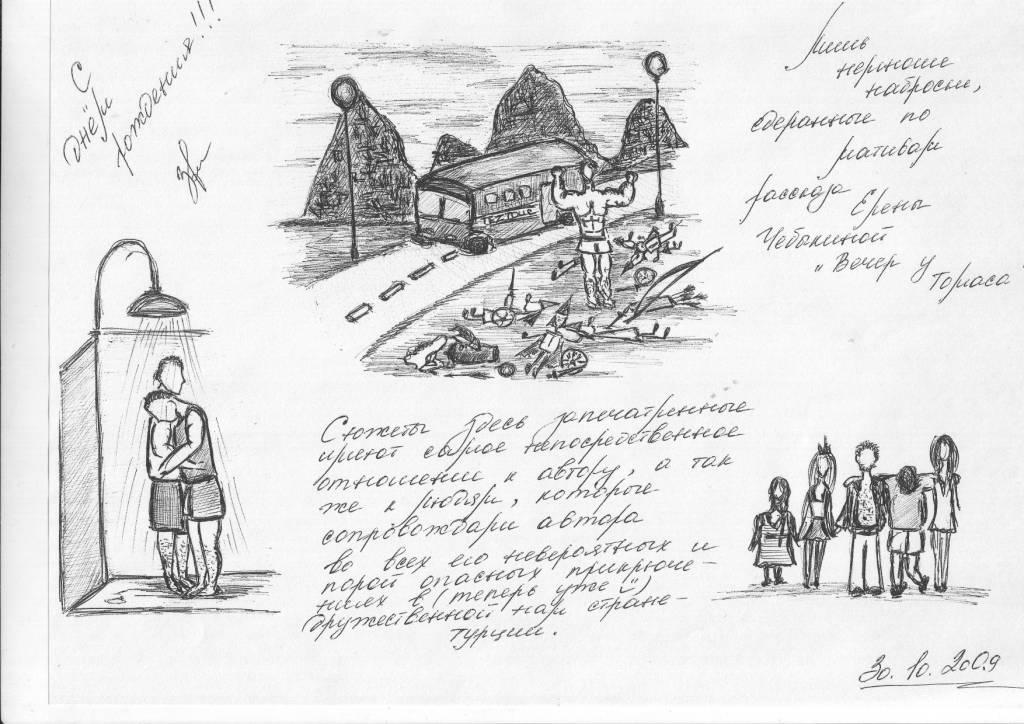 С
днём
рождения!!!
Лишь
наброски,
сделанные по
мотивам
рассказа Елены
Чебыкиной
"Вечер у
Томаса"
Сюжеты здесь запечатленные
имеют самое непосредственное
отношение к автору, а так
же к людям, которые
сопровождали автора
во всех его невероятных и
порой опасных приключе-
ниях в (теперь уже")
дружественной нам стране-
турции.
30.10.2009